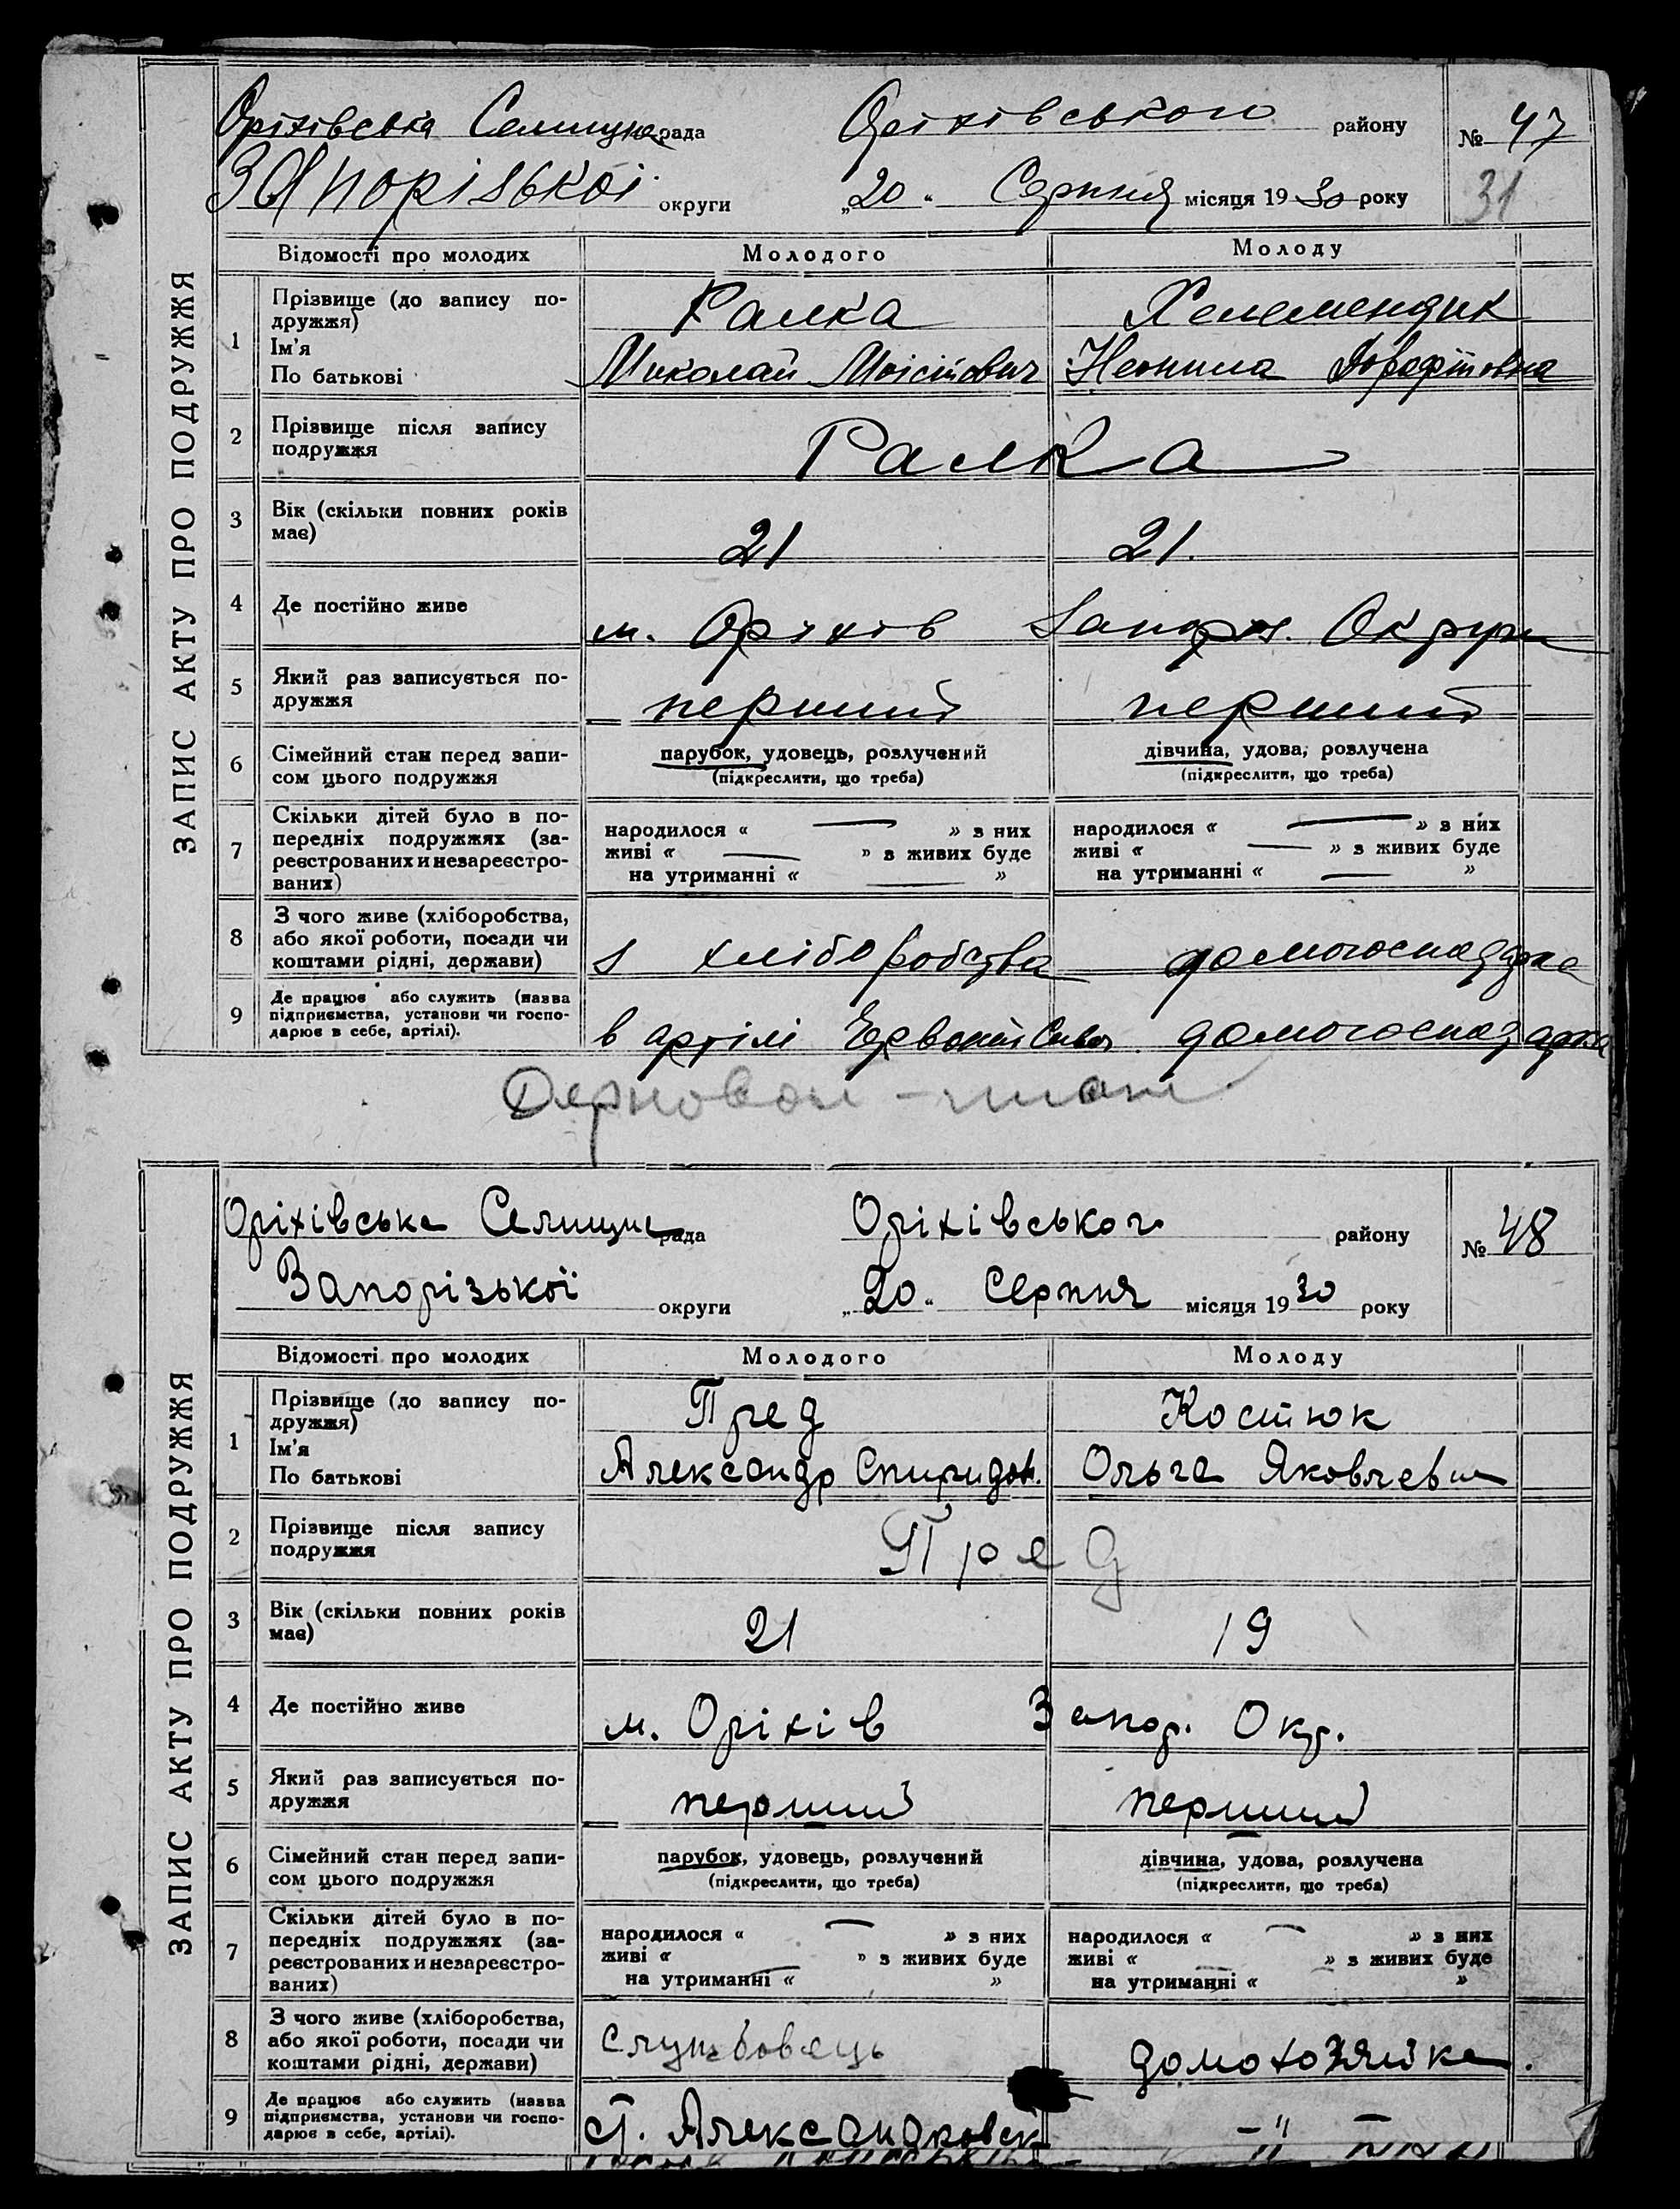 ЗАПИС АКТУ ПРО ПОДРУЖЖЯ
Оріхівська Селищна рада Оріхівського району № 47
Запорізької округи „20" Серпня місяця 1930 року 31
Відомості про молодих Молодого Молоду
1 Прізвище (до запису по-
дружжя)
Ім'я
По батькові
Галка Хелемендик
Миколай Мойсійович Неонила
2 Прізвище після запису
подружжя
Галка
3 Вік (скільки повних років
має)
21 21.
4 Де постійно живе м. Оріхів Запоріз. Округи
5 Який раз записується по-
дружжя
перший перший
6 Сімейний стан перед запи-
сом цього подружжя
парубок, удовець, розлучений дівчина, удова, розлучена
(підкреслити, що треба) (підкреслити, що треба)
7 Скільки дітей було в по-
передніх подружжях (за-
реєстрованих и незареєстро-
ваних)
народилося « — » з них народилося « — » з них
живі « — » з живих буде живі « — » з живих буде
на утриманні « — » на утриманні « — »
8 З чого живе (хліборобства,
або якої роботи, посади чи
коштами рідні, держави)
з хліборобства домогосподарка
9 Де працює або служить (назва
підприємства, установи чи госпо-
дарює в себе, артілі).
в артілі домогосподарка
ЗАПИС АКТУ ПРО ПОДРУЖЖЯ
Оріхівська Селищна рада Оріхівського району № 48
Запорізької округи „20" Серпня місяця 1930 року
Відомості про молодих Молодого Молоду
1 Прізвище (до запису по-
дружжя)
Ім'я
По батькові
Пред Костюк
Александр Спиридон. Ольга Яковлевна
2 Прізвище після запису
подружжя
Пред
3 Вік (скільки повних років
має)
21 19
4 Де постійно живе м. Оріхів Запор. Окр.
5 Який раз записується по-
дружжя
перший перший
6 Сімейний стан перед запи-
сом цього подружжя
парубок, удовець, розлучений дівчина, удова, розлучена
(підкреслити, що треба) (підкреслити, що треба)
7 Скільки дітей було в по-
передніх подружжях (за-
реєстрованих и незареєстро-
ваних)
народилося « — » з них народилося « — » з них
живі « » з живих буде живі « — » з живих буде
на утриманні « — » на утриманні « »
8 З чого живе (хліборобства,
або якої роботи, посади чи
коштами рідні, держави)
Службовець домохозяйка.
9 Де працює або служить (назва
підприємства, установи чи госпо-
дарює в себе, артілі).
ст. Александровск — " —